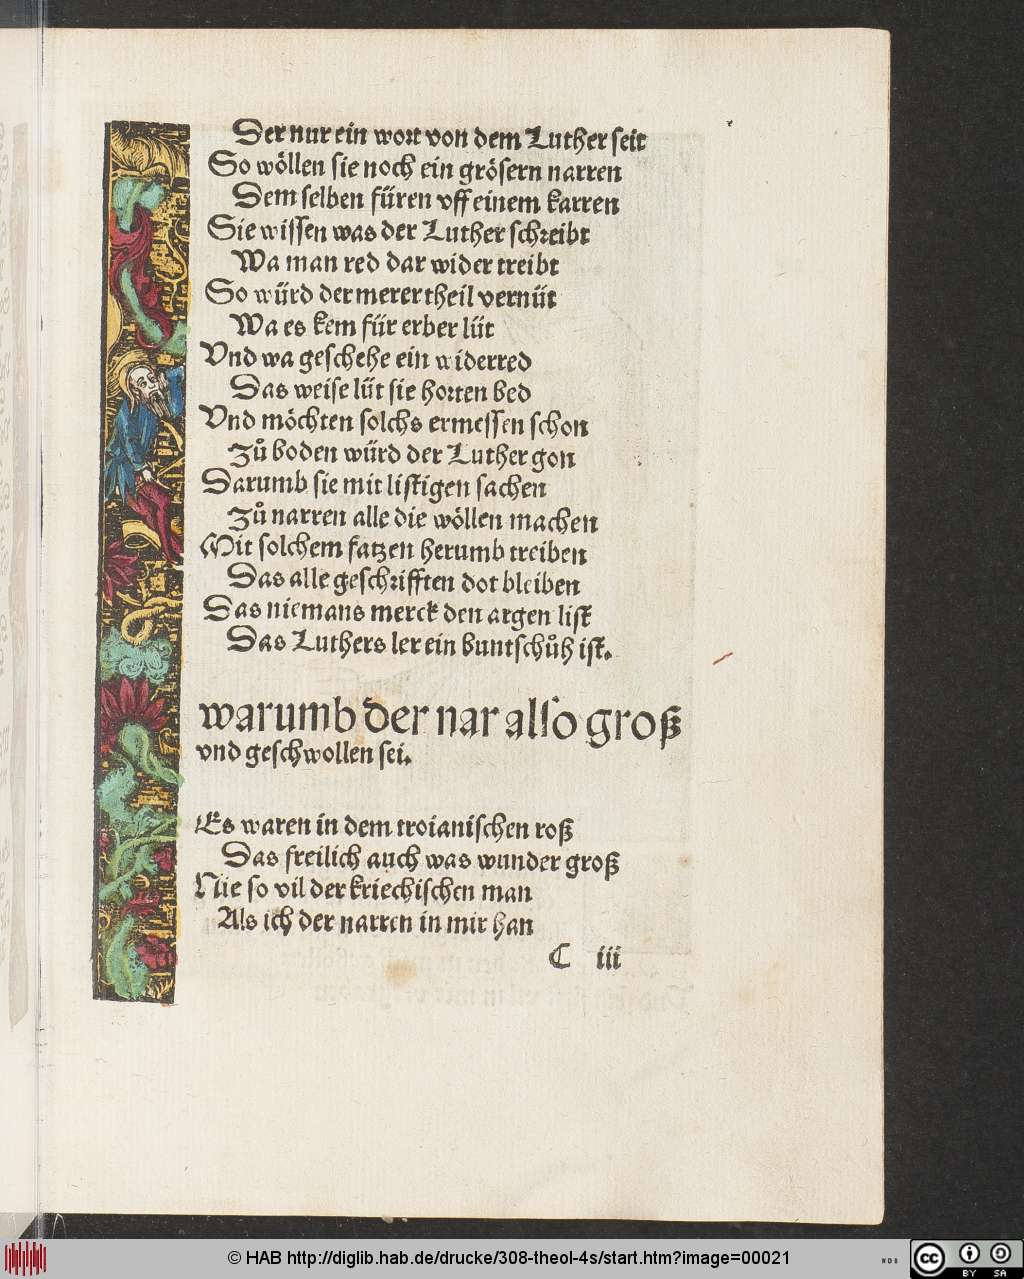 Der nur ein wort von dem Luther seit
So wöllen sie noch ein grösern narren
Dem selben füren vff einem karren
Sie wissen was der Luther schreibt
Wa man red dar wider treibt
So würd der merer theil vernüt
Wa es kem für erber lüt
Vnd wa geschehe ein widerred
Das weise lüt sie horten bed
Vnd möchten solchs ermessen schon
Zů boden würd der Luther gon
Darumb sie mit listigen sachen
Zů narren alle die wöllen machen
Mit solchem fatzen herumb treiben
Das alle geschrifften dot bleiben
Das niemans merck den argen list
Das Luthers ler ein buntschůh ist.
warumb der nar also groß
vnd geschwollen sei.
Es waren in dem troianischen roß
Das freilich auch was wunder groß
Nie so vil der kriechischen man
Als ich der narren in mir han
C iii
© HAB http://diglib.hab.de/drucke/308-theol-4s/start.htm?image=00021
WDB
cc BY SA